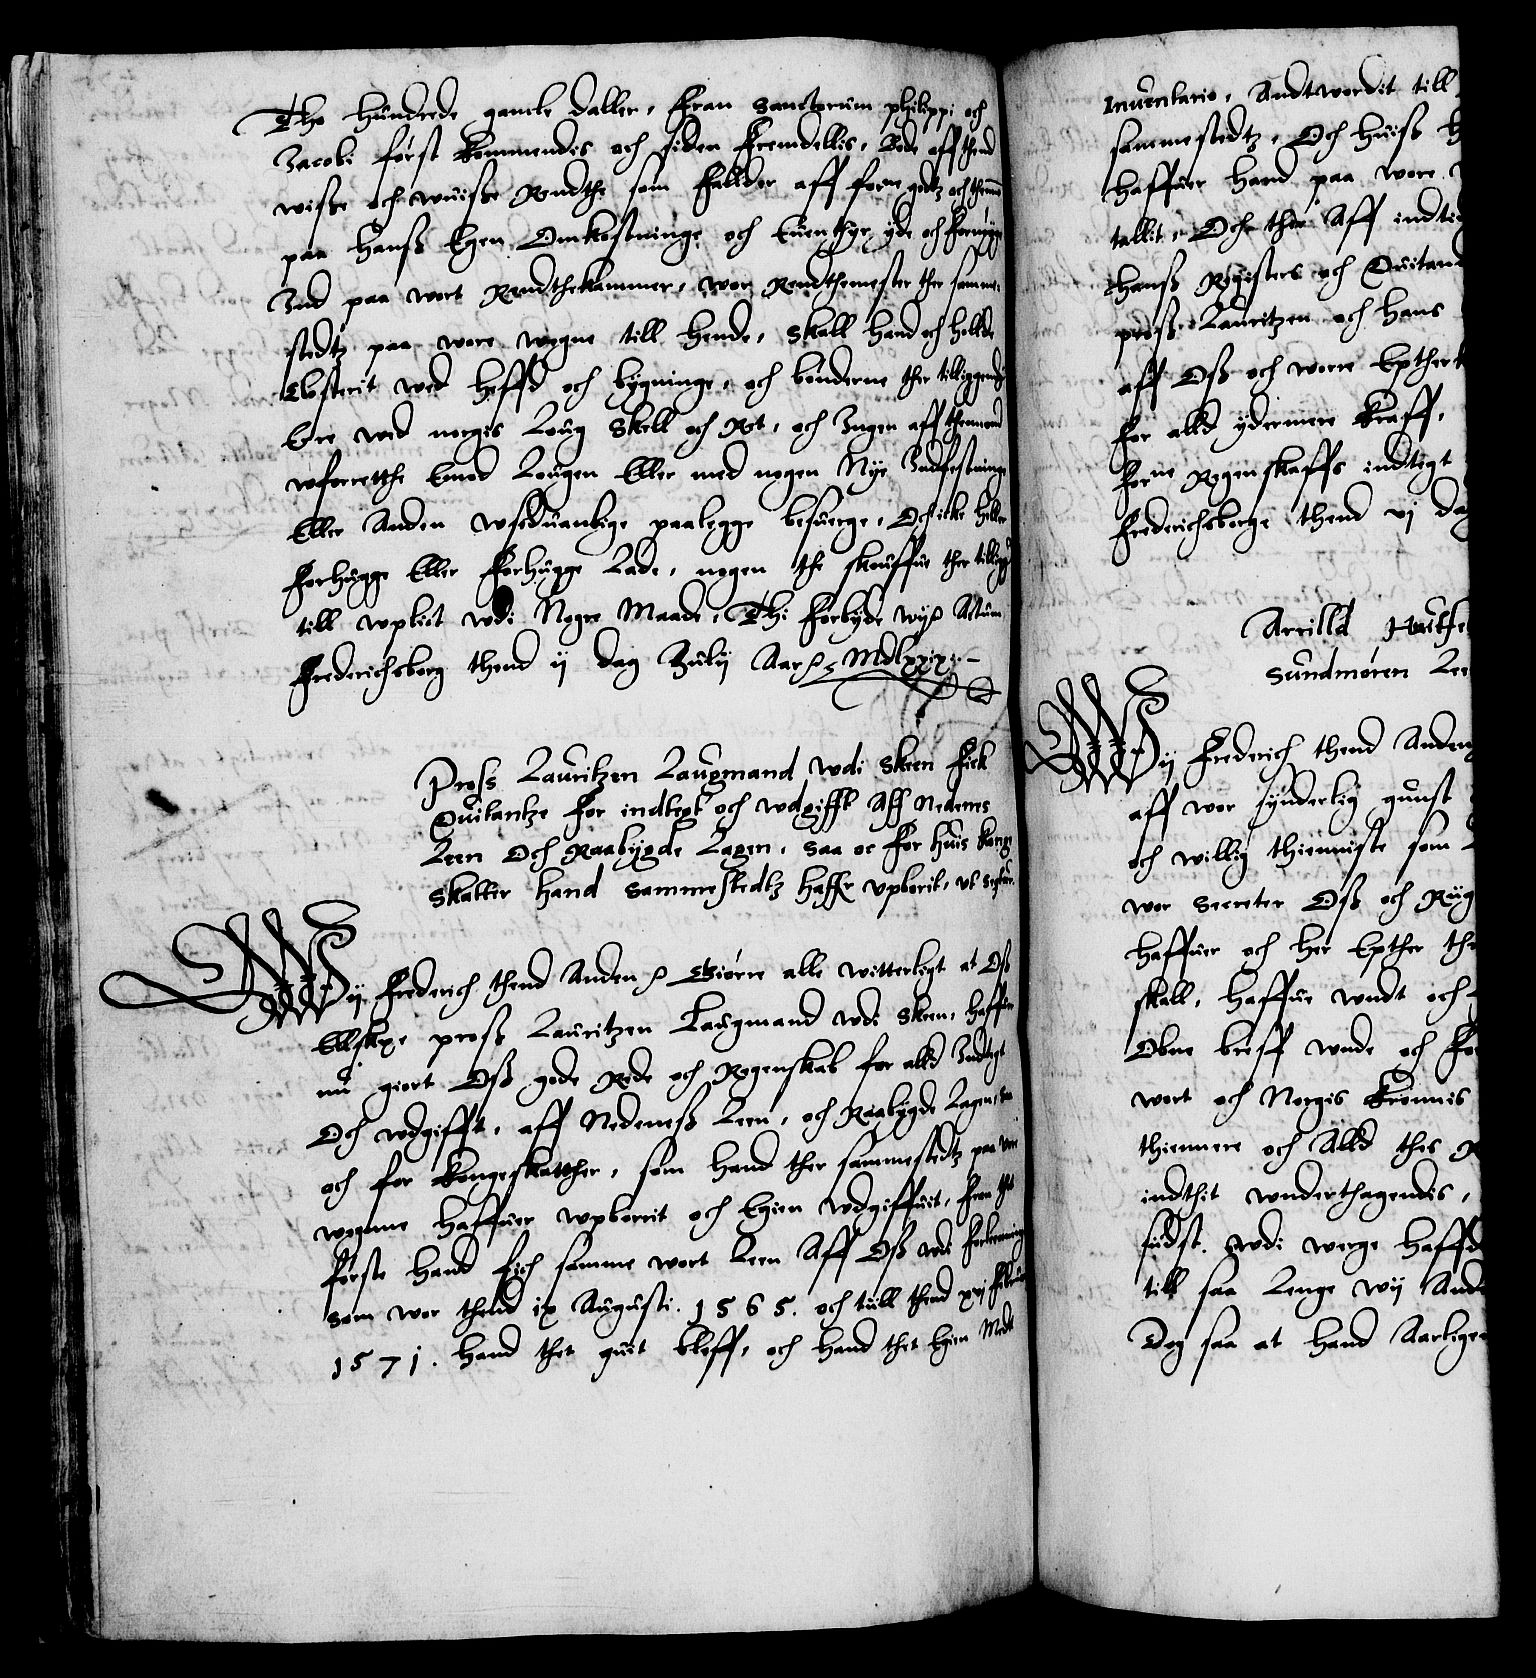 Tho hundrede gamle daller, Fran Sanctorum philippi och
Jacobi først kommendis och siden Fremdellis, Bode aff thend
wisse och wuisse Rendthe som Falder aff forne godtz och themme
paa hanss Egen Omkostninge och Euenthyr yde och Fornøye
Ind paa wort Rendthekammer, wor Rendthemester ther samme
stedtz paa wore wegne till hende, Skall hand och holde
Closterit wed heffd och bygninge, och bønderne ther tilliggendis
Ere wed norgis Loug Skell och Ret, och Ingen aff themmend
wforretthe Emod Lougen Eller med nogen Nye Indfestninge
Eller Anden wseduanlige paalegge besuerge, Och icke heller
Forhugge Eller Forhugge Lade, nogen the skouffue ther tilligge
till wplict wdi Nogre Maade, Thi Forbyde wij Actum
Frederichsborg thend ij dag Julij Aar Mdlxxix
Pross Lauritzen Laugmand wdi Skeen Fick
Quitantze For indtegt och wdgifft Aff Nedenes
Leen Och Raabygde Lagen, saa oc For huis kong
skatter hand sammestedtz haffr vpborit, ut seqtur
Wij Frederich thend Anden Giøre alle witterligt at Oss
Elskge pross Lauritzen Laugmand wdi Skeen, haffuer
nu giort Oss gode Rede och Regenskab for alld Indtegt
Och wdgifft, aff Nedeness Leen, och Raabygde Lagen, saa
och for kongeskatther, som hand ther sammestedtz paa wore
wegnne haffuer wpborrit och Egien wdgiffuit, Fran thet
første hand fich samme wort Leen Aff Oss wdi Forlenning
som wor thend ix Augusti. 1565. och till thend xvj Februar
1571. hand thet quit bleff, och hand thet Egien Medt
Inuentario, Andtwordit till
sammestedtz, Och huiss
haffuer hand paa wore
tallit, Och ther Aff indti
hanss Registers och Quitand
pross Lauritzen och hans
aff Oss och worre Epther
For alld ydermere kraff,
Forne Regenskaffs indtegt
Frederichsborge thend vj dag
Arrilld
Sundmøren Lee
Wij Frederich thend Anden
aff wor synderlig gunst
och willig thienniste som
wor Secreter Oss och Rig
haffuer och her Epther the
skall, haffue wndt och
Obne breff wnde och For
wort och Norgis kronnis
thiennere och Alld thes
indthit wnderthagendis,
sidst wdi werge haffd
till saa Lenge wij And
Dog saa at hand Aarligen